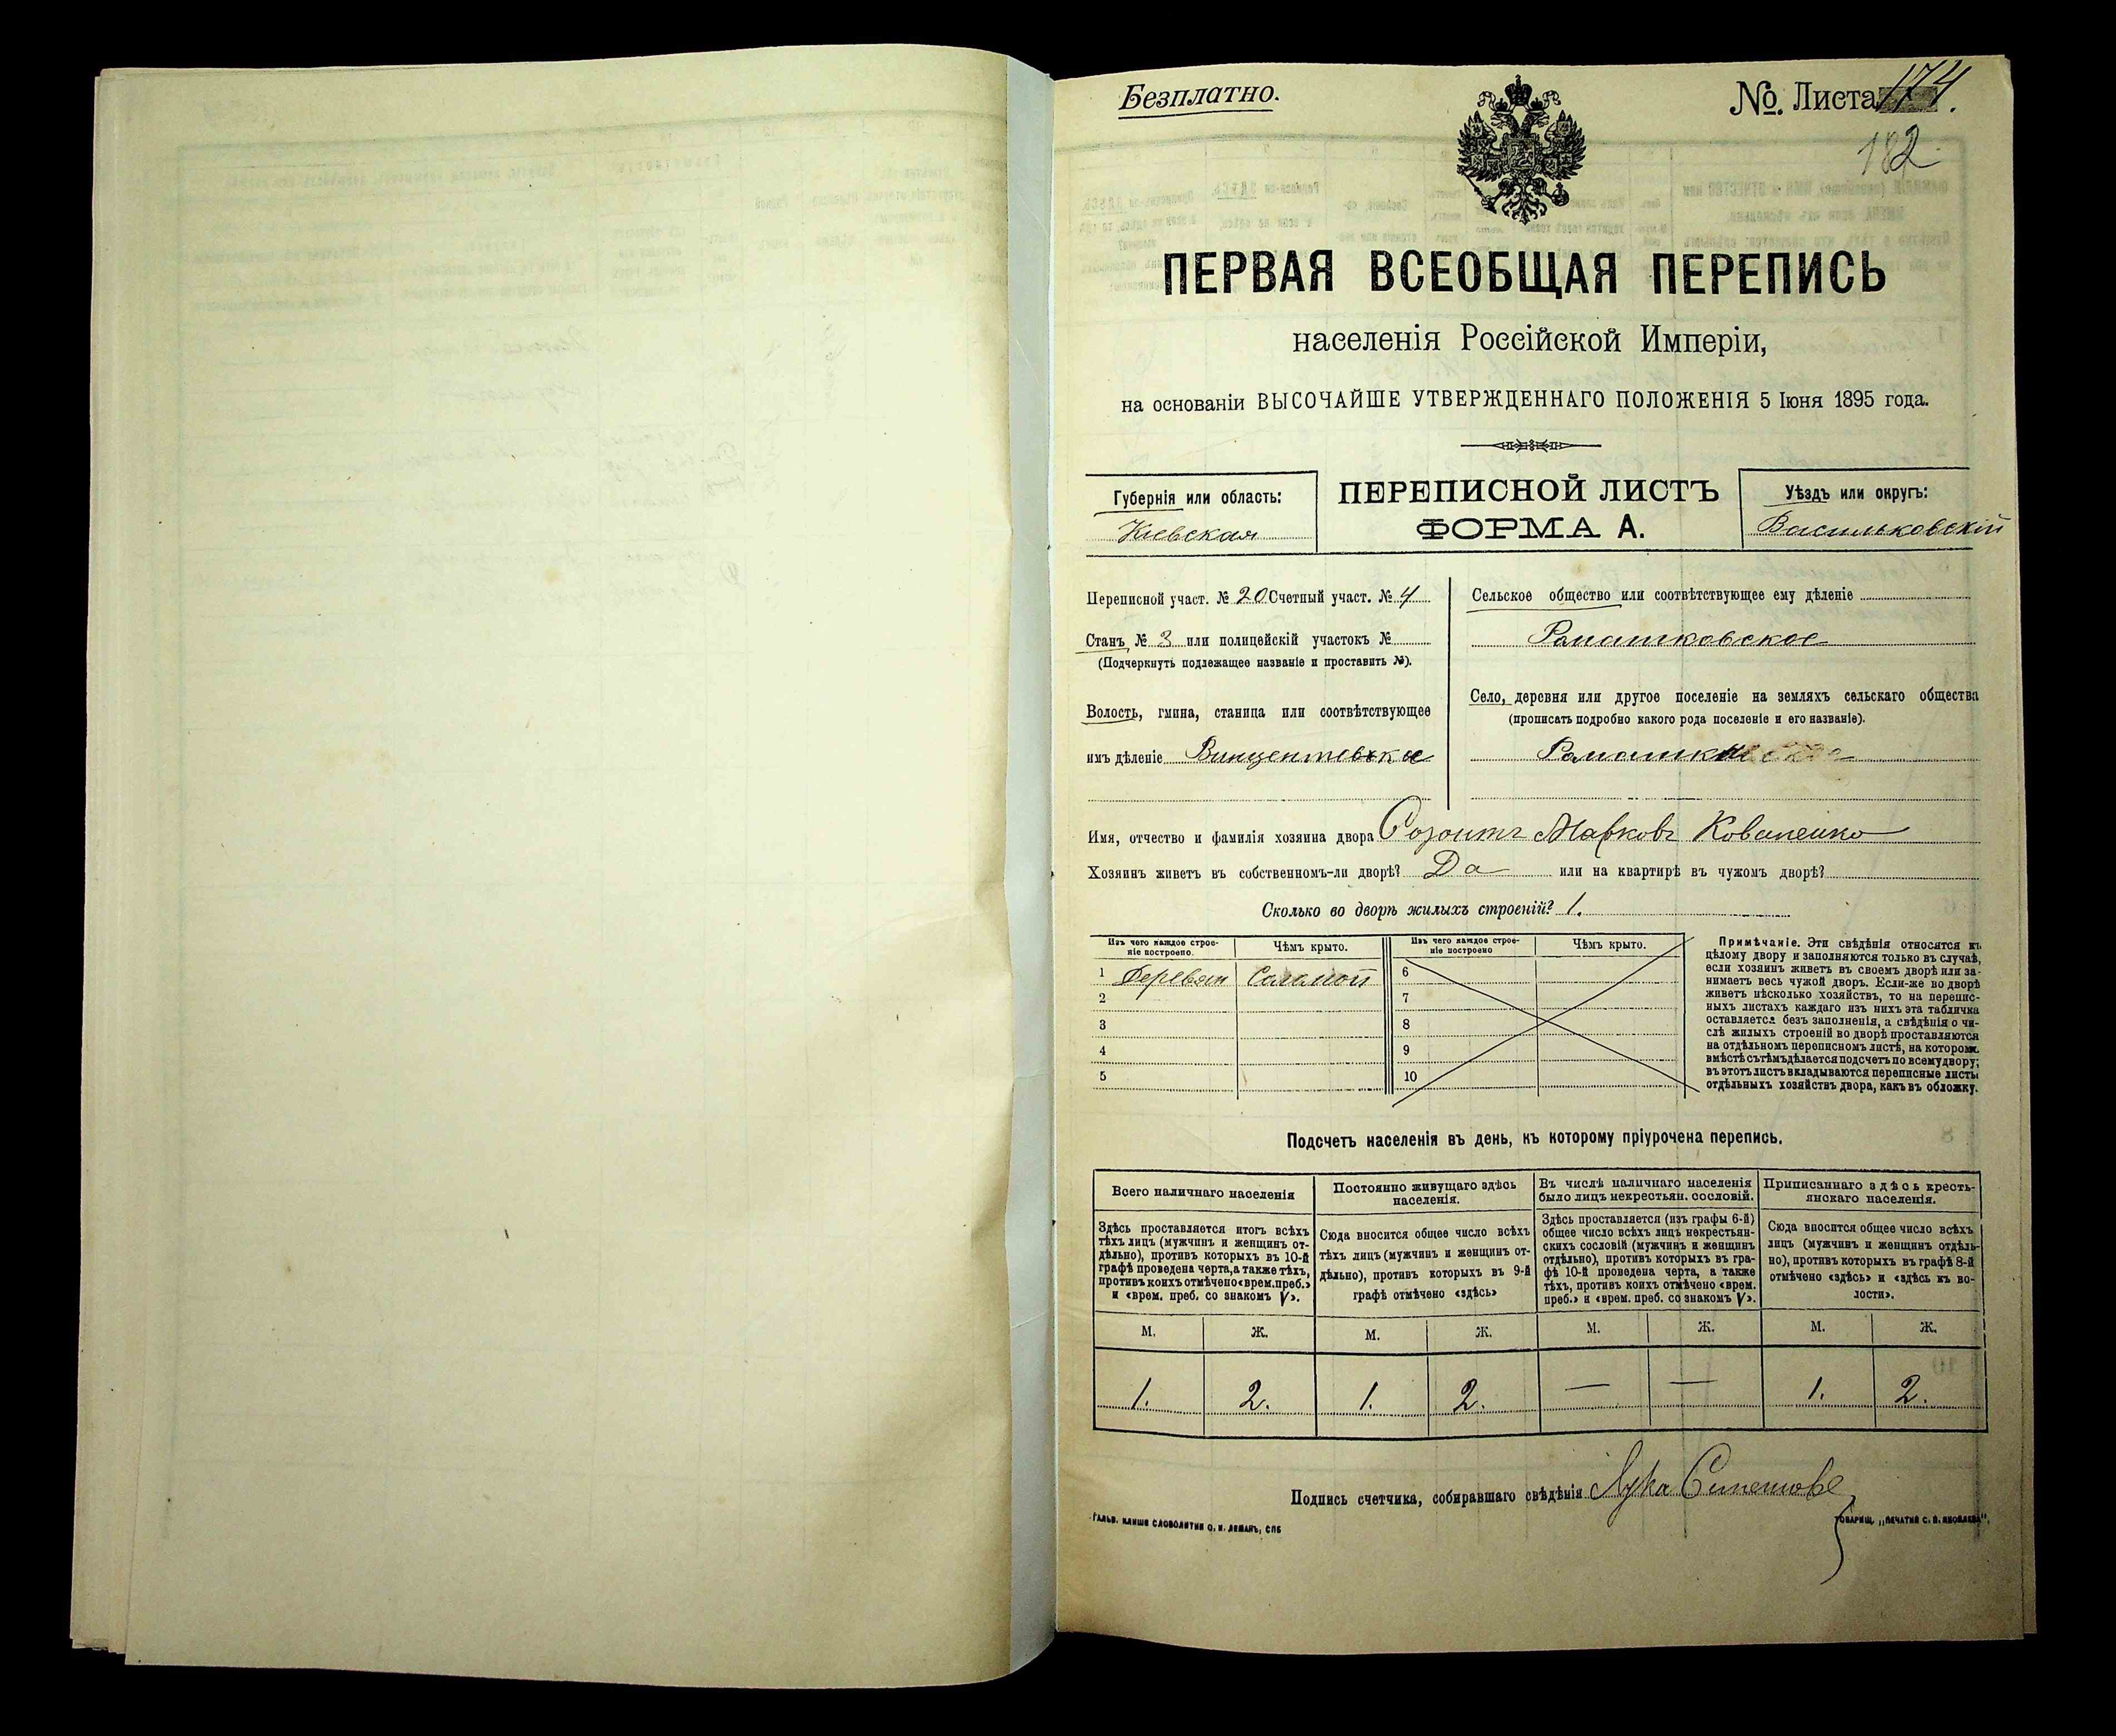 Безплатно.
No. Листа 174.
182
ПЕРВАЯ ВСЕОБЩАЯ ПЕРЕПИСЬ
населенія Россійской Имперіи,
на основаніи ВЫСОЧАЙШЕ УТВЕРЖДЕННАГО ПОЛОЖЕНІЯ 5 Іюня 1895 года.
Губернія или область:
Кіевская
ПЕРЕПИСНОЙ ЛИСТЪ
ФОРМА А.
Уѣздъ или округъ:
Васильковскій
Переписной участ. № 20 Счетный участ. № 4
Станъ № 3 или полицейскій участокъ №
(Подчеркнуть подлежащее названіе и проставить №).
Волость, гмина, станица или соотвѣтствующее
имъ дѣленіе Винцентовка
Сельское общество или соотвѣтствующее ему дѣленіе
Ромашковское
Село, деревня или другое поселеніе на земляхъ сельскаго общества
(прописать подробно какого рода поселеніе и его названіе).
Ромашки
Имя, отчество и фамилія хозяина двора Созонтъ Марковъ Коваленко
Хозяинъ живетъ въ собственномъ-ли дворѣ? Да или на квартирѣ въ чужомъ дворѣ?
Сколько во дворѣ жилыхъ строеній? 1.
Изъ чего каждое строе-
ніе построено.
Чѣмъ крыто.
Изъ чего каждое строе-
ніе построено
Чѣмъ крыто.
1 Деревян Соломой
2
3
4
5
6
7
8
9
10
Примѣчаніе. Эти свѣдѣнія относятся къ
цѣлому двору и заполняются только въ случаѣ,
если хозяинъ живетъ въ своемъ дворѣ или за-
нимаетъ весь чужой дворъ. Если-же во дворѣ
живетъ нѣсколько хозяйствъ, то на перепис-
ныхъ листахъ каждаго изъ нихъ эта табличка
оставляется безъ заполненія, а свѣдѣнія о чи-
слѣ жилыхъ строеній во дворѣ проставляются
на отдѣльномъ переписномъ листѣ, на которомъ
вмѣстѣ съ тѣмъ дѣлается подсчетъ по всему двору;
въ этотъ листъ вкладываются переписные листы
отдѣльныхъ хозяйствъ двора, какъ въ обложку.
Подсчетъ населенія въ день, къ которому пріурочена перепись.
Всего наличнаго населенія
Постоянно живущаго здѣсь
населенія.
Въ числѣ наличнаго населенія
было лицъ некрестьян. сословій.
Приписаннаго здѣсь кресть-
янскаго населенія.
Здѣсь проставляется итогъ всѣхъ
тѣхъ лицъ (мужчинъ и женщинъ от-
дѣльно), противъ которыхъ въ 10-й
графѣ проведена черта, а также тѣхъ,
противъ коихъ отмѣчено «врем. преб.»
и «врем. преб. со знакомъ V».
Сюда вносится общее число всѣхъ
тѣхъ лицъ (мужчинъ и женщинъ от-
дѣльно), противъ которыхъ въ 9-й
графѣ отмѣчено «здѣсь»
Здѣсь проставляется (изъ графы 6-й)
общее число всѣхъ лицъ некрестьян-
скихъ сословій (мужчинъ и женщинъ
отдѣльно), противъ которыхъ въ гра-
фѣ 10-й проведена черта, а также
тѣхъ, противъ коихъ отмѣчено «врем.
преб.» и «врем. преб. со знакомъ V».
Сюда вносится общее число всѣхъ
лицъ (мужчинъ и женщинъ отдѣль-
но), противъ которыхъ въ графѣ 8-й
отмѣчено «здѣсь» и «здѣсь къ во-
лости».
М. Ж. М. Ж. М. Ж. М. Ж.
1. 2. 1. 2. — — 1. 2.
Подпись счетчика, собиравшаго свѣдѣнія Лука
Гальв. клише словолитни О. И. Леманъ, СПБ
Товарищ. „Печатня С. П. Яковлева“.